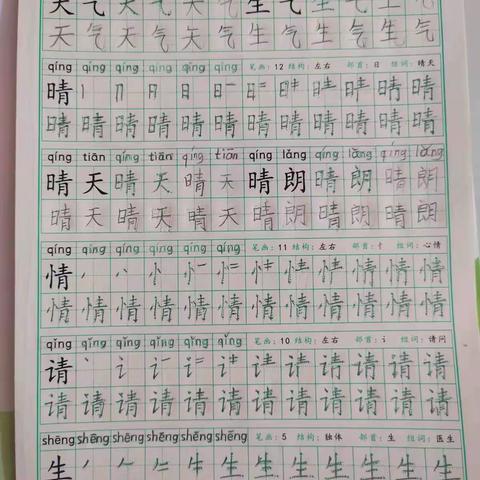 天 气 天 气 天 气 生 气 生 气 生 气
天 气 天 气 天 气 生 气 生 气 生 气
qíng qíng qíng qíng qíng 笔画：12 结构：左右 部首：日 组词：晴天
晴 晴 晴 晴
晴 晴 晴 晴 晴 晴 晴 晴 晴 晴 晴 晴
qíng tiān qíng tiān qíng tiān qíng lǎng qíng lǎng qíng lǎng
晴 天 晴 天 晴 天 晴 朗 晴 朗 晴 朗
晴 天 晴 天 晴 天 晴 朗 晴 朗 晴 朗
qíng qíng qíng qíng qíng qíng 笔画：11 结构：左右 部首：忄 组词：心情
情 忄 情 情 情
情 情 情 情 情 情 情 情 情 情 情 情
qǐng qǐng qǐng qǐng qǐng qǐng 笔画：10 结构：左右 部首：讠 组词：请问
请 讠 请 请 请 请
请 请 请 请 请 请 请 请 请 请 请 请
shēng shēng shēng shēng shēng shēng 笔画：5 结构：独体 部首：生 组词：医生
生 生 生 生 生 生 生 生 生